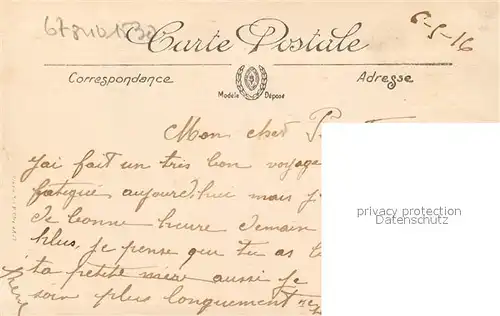 6-5-16
Carte Postale
Correspondance
Adresse
Modèle Déposé
Mon cher
J'ai fait un très bon voyage
fatigué aujourd'hui mais j'
de bonne heure demain
plus, je pense que tu as
ta petite mère aussi je
soir plus longuement
privacy protection
datenschutz